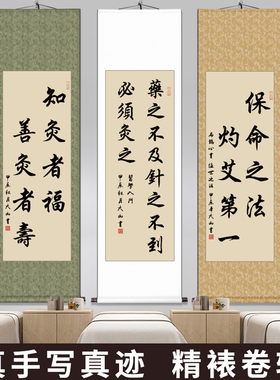 保命之法
灼艾第一
藥之不及針之不到
必須灸之
醫學入門
甲辰秋月大山書
知灸者福
善灸者壽
甲辰秋月大山書
真手写真迹 精裱卷轴